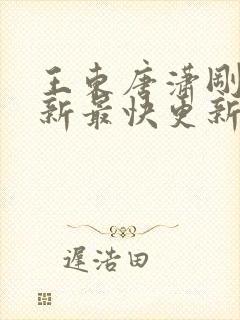 王东唐潇刚
新最快更新
遲浩田